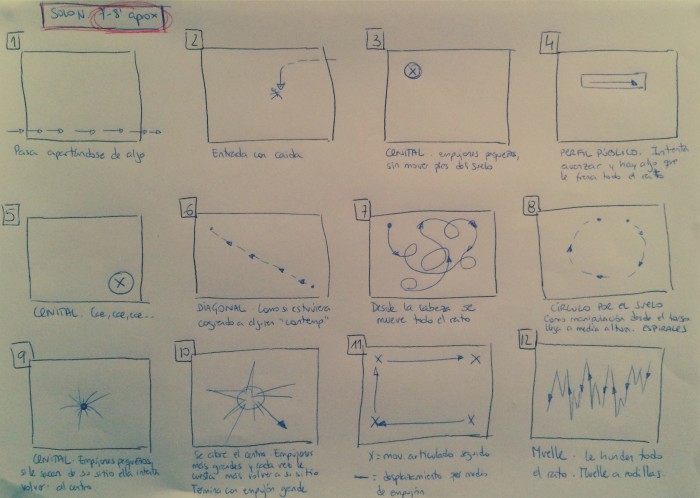 SOLO N 7-8' aprox
1
Pasa apartándose de algo
2
Entrada con caída
3
CENITAL. empujones pequeños,
sin mover pies del suelo
4
PERFIL PÚBLICO. Intenta
avanzar y hay algo que
le frena todo el rato
5
CENITAL. Cae, cae, cae...
6
DIAGONAL como si estuviera
cogiendo a alguien "contemp"
7
Desde la cabeza se
mueve todo el resto
8
CÍRCULO POR EL SUELO
Como manipulación desde el
llega a media altura. ESPIRALES
9
CENITAL. Empujones pequeños,
si le sacan de su sitio ella intenta
volver al centro
10
Se abre el centro. Empujones
más grandes y cada vez le
cuesta más volver a su sitio
Termina con empujón grande
11
X = mov. articulado seguido
— = desplazamiento por medio
de empujón
12
Muelle. Le hunden todo
el rato. Muelle a rodillas.